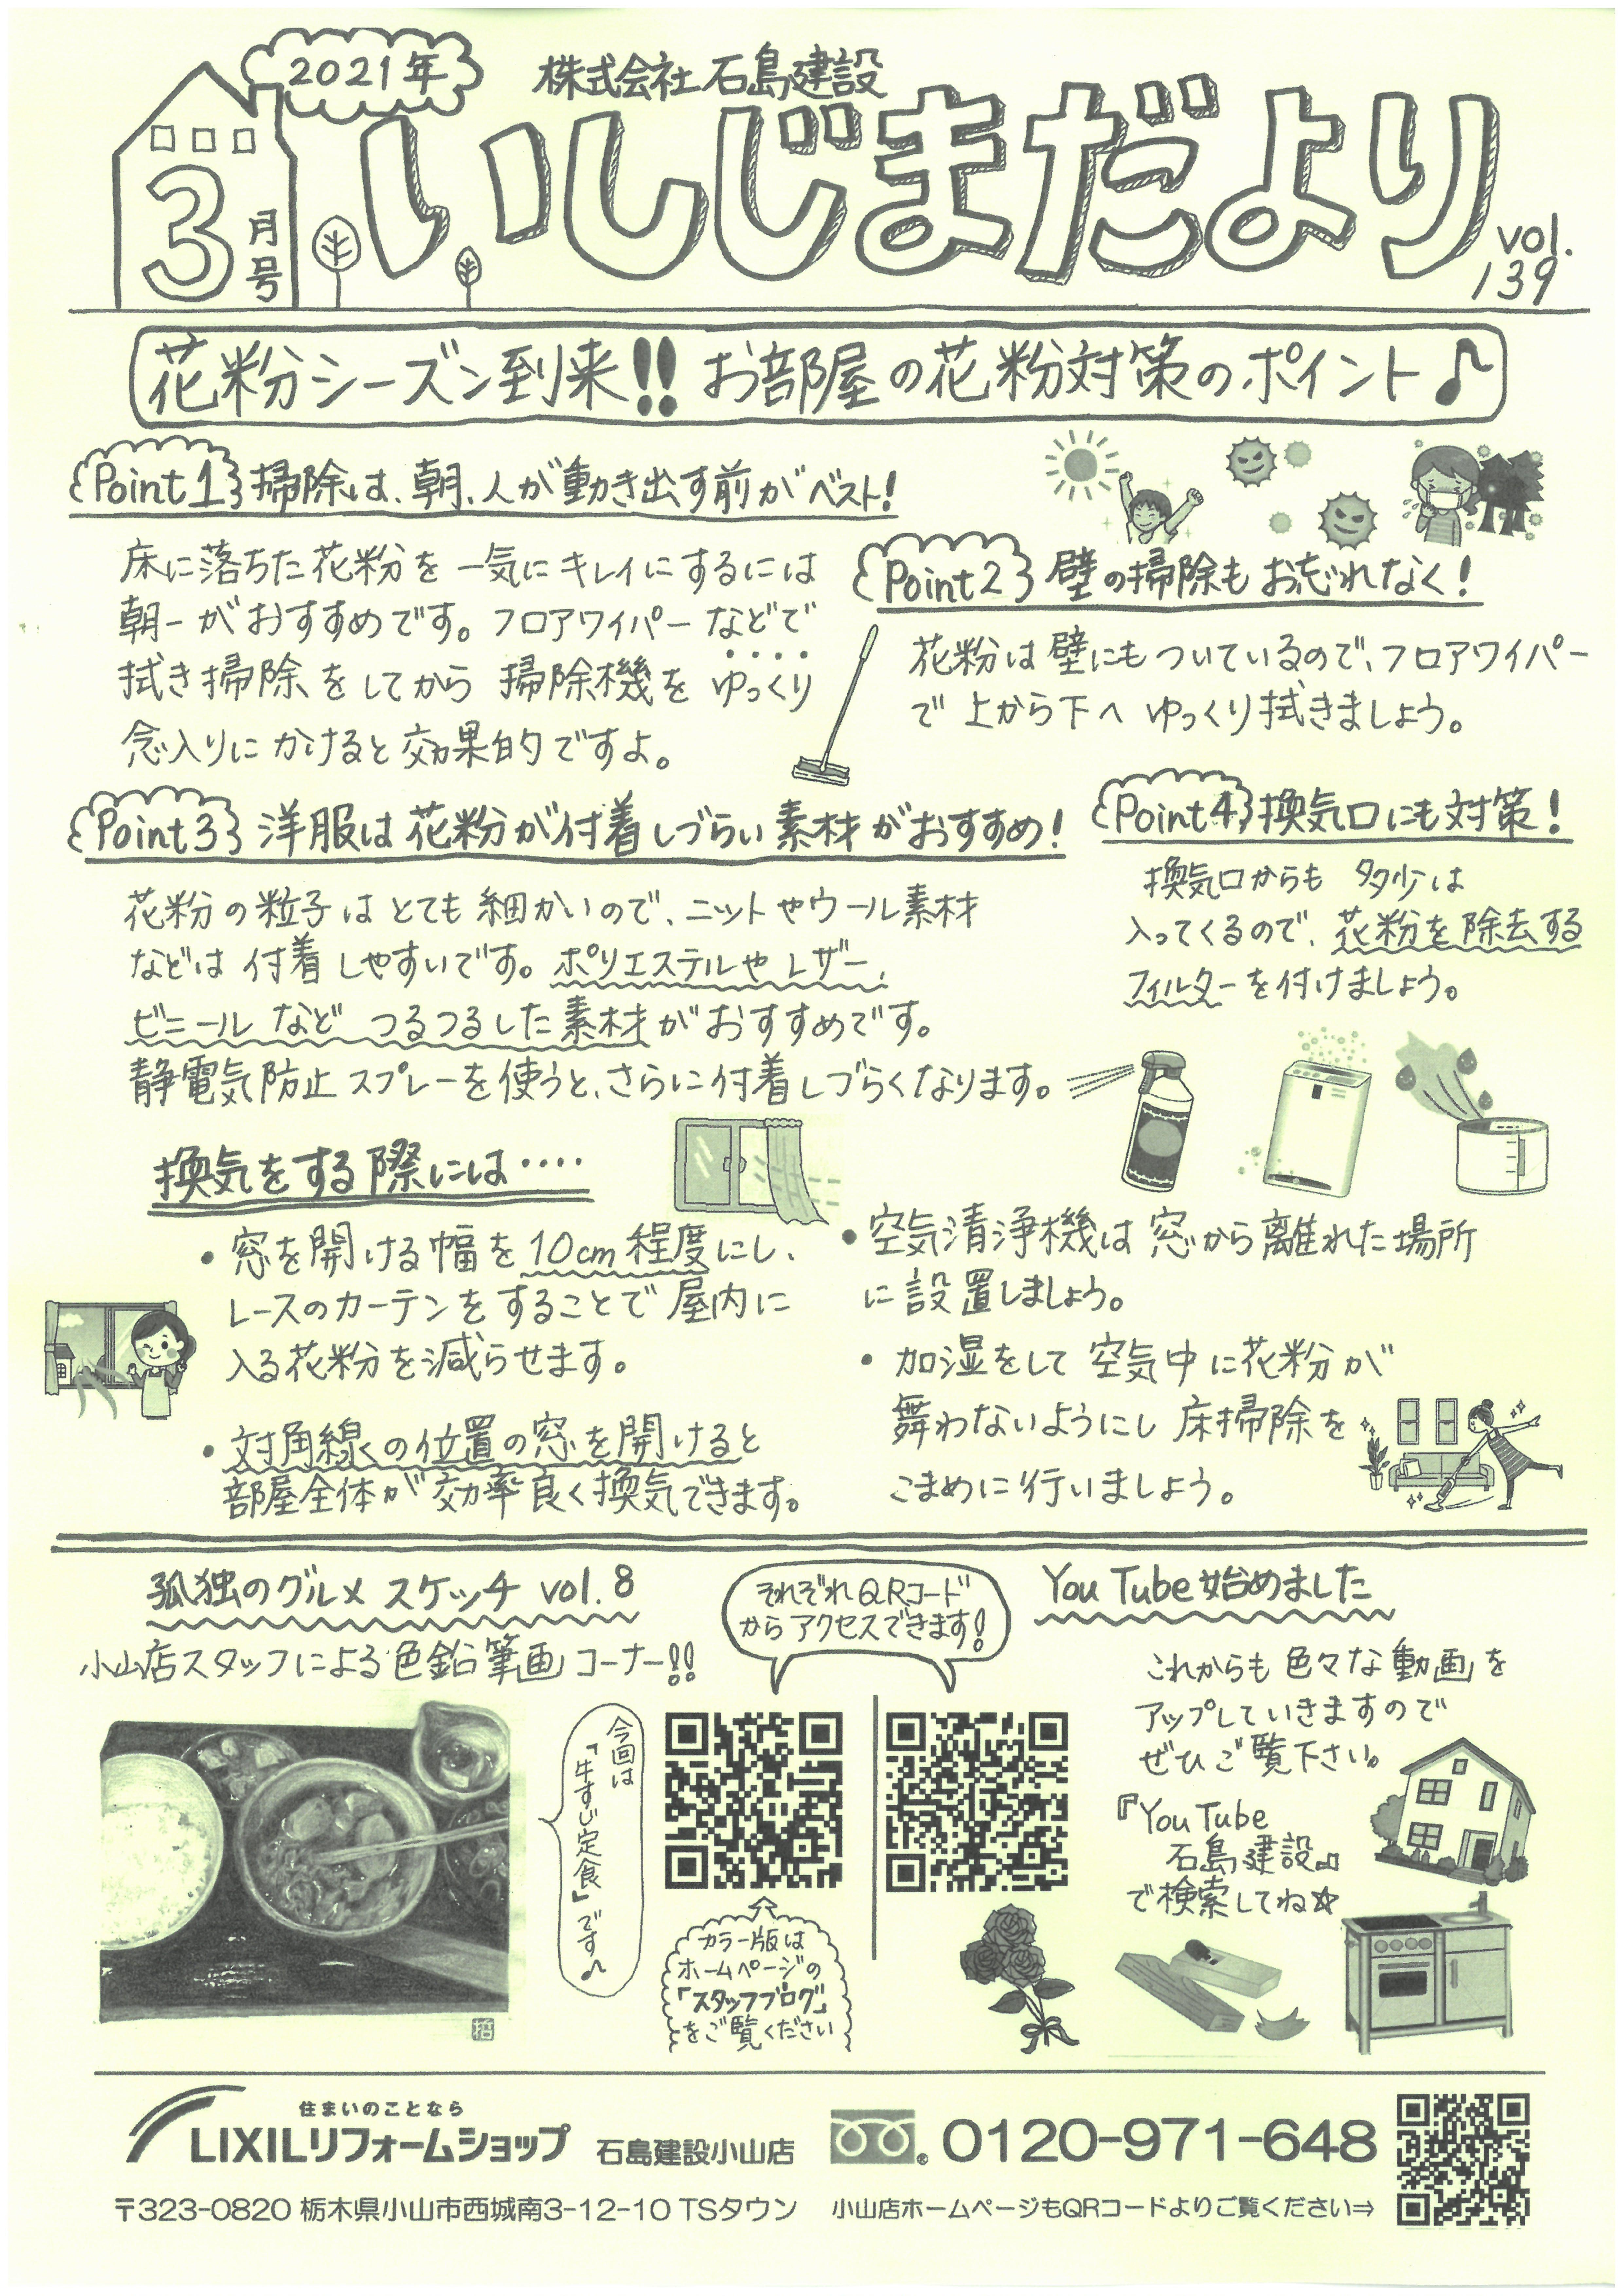 2021年
株式会社 石島建設
3月号
いしじまだより
vol.
139
花粉シーズン到来!! お部屋の花粉対策のポイント♪
Point1 掃除は、朝、人が動き出す前がベスト!
床に落ちた花粉を一気にキレイにするには
朝一がおすすめです。フロアワイパーなどで
拭き掃除をしてから 掃除機を ゆっくり
念入りに かけると効果的ですよ。
Point2 壁の掃除もお忘れなく!
花粉は壁にもついているので、フロアワイパー
で上から下へ ゆっくり拭きましょう。
Point3 洋服は花粉が付着しづらい素材がおすすめ!
花粉の粒子はとても細かいので、ニットやウール素材
などは付着しやすいです。ポリエステルやレザー、
ビニールなど つるつるした素材がおすすめです。
静電気防止スプレーを使うと、さらに付着しづらくなります。
Point4 換気口にも対策!
換気口からも 多少は
入ってくるので、花粉を除去する
フィルターを付けましょう。
換気をする際には・・・・
・窓を開ける幅を10cm程度にし、
レースのカーテンをすることで屋内に
入る花粉を減らせます。
・対角線の位置の窓を開けると
部屋全体が効率良く換気できます。
・空気清浄機は窓から離れた場所
に設置しましょう。
・加湿をして空気中に花粉が
舞わないようにし床掃除を
こまめに行いましょう。
孤独のグルメ スケッチ vol.8
小山店スタッフによる色鉛筆画コーナー!!
今回は
「牛すじ定食」です♪
それぞれQRコード
からアクセスできます!
カラー版は
ホームページの
「スタッフブログ」
をご覧ください
YouTube始めました
これからも色々な動画を
アップしていきますので
ぜひご覧下さい。
『YouTube
石島建設』
で検索してね☆
住まいのことなら
LIXILリフォームショップ 石島建設小山店
0120-971-648
〒323-0820 栃木県小山市西城南3-12-10 TSタウン
小山店ホームページもQRコードよりご覧ください⇒